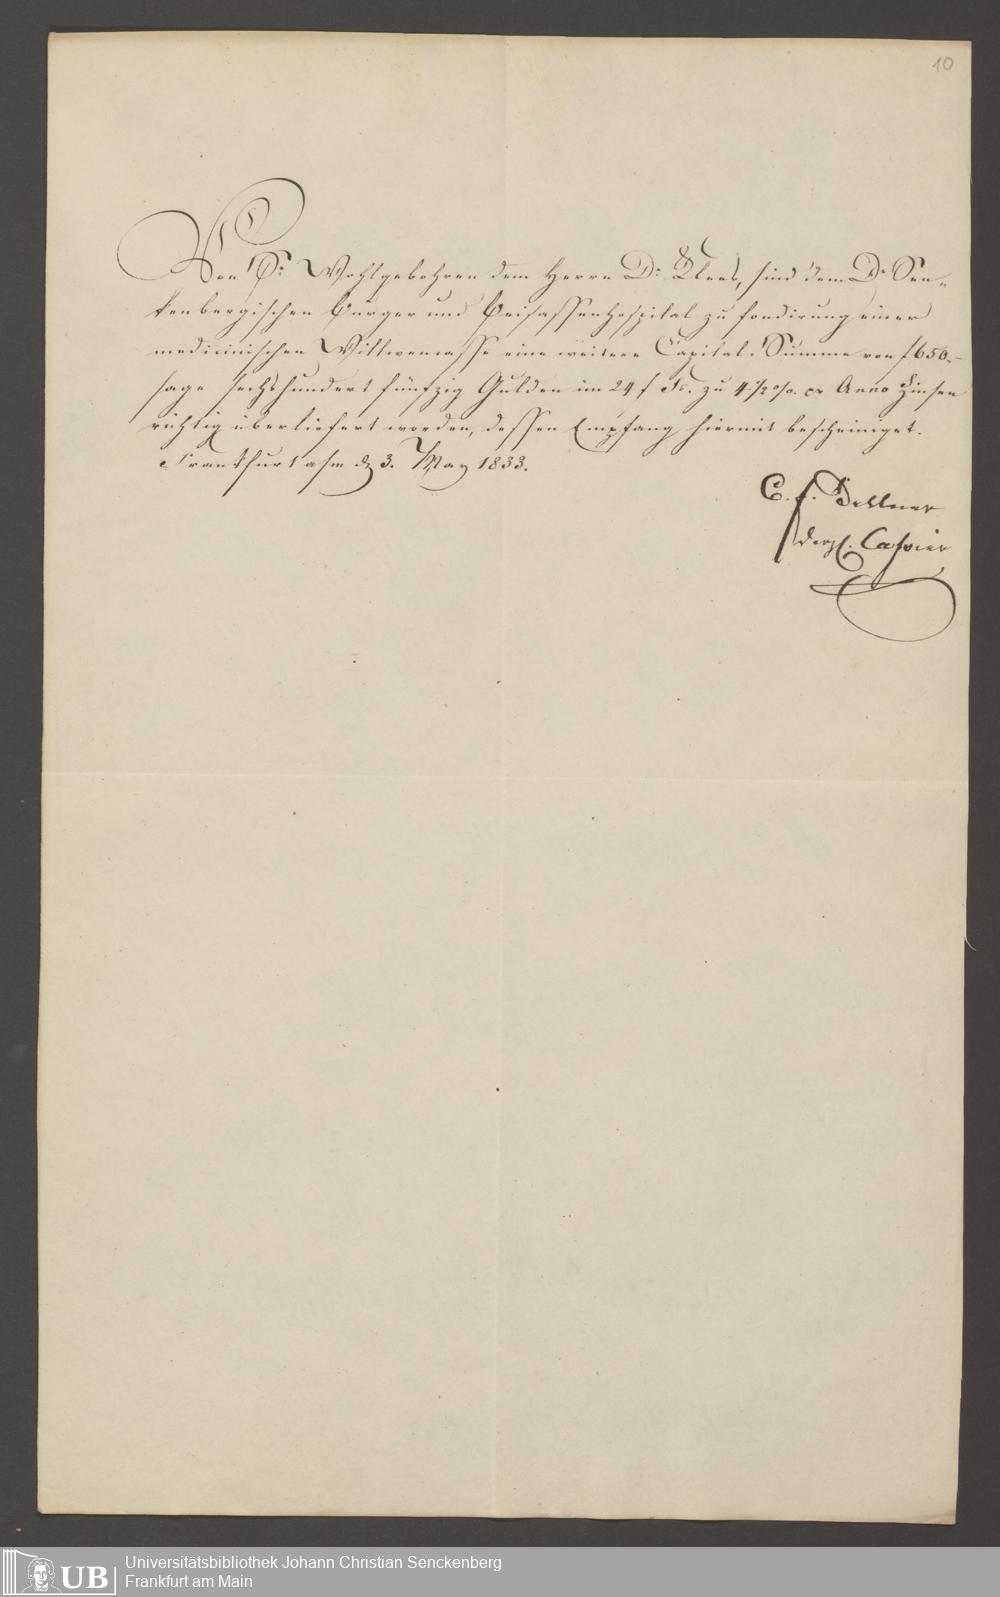 10
Von Sr. Wohlgebohren dem Herrn Dr. Kloss, sind dem Dr. Sen-
kenbergischen Bürger und Beisassenhospital zu Fondirung einer
medicinischen Wittwencasse eine weitere Capital-Summe von f 650.-
sage sechshundert fünfzig Gulden im 24 f Fs. zu 4 1/2 o/o. pr Anno Zinsen
richtig überliefert worden, dessen Empfang hiermit bescheiniget.
Frankfurt a/m d. 3. May 1833.
C. F. Bellner
derzt. Cassier
UB
Universitätsbibliothek Johann Christian Senckenberg
Frankfurt am Main